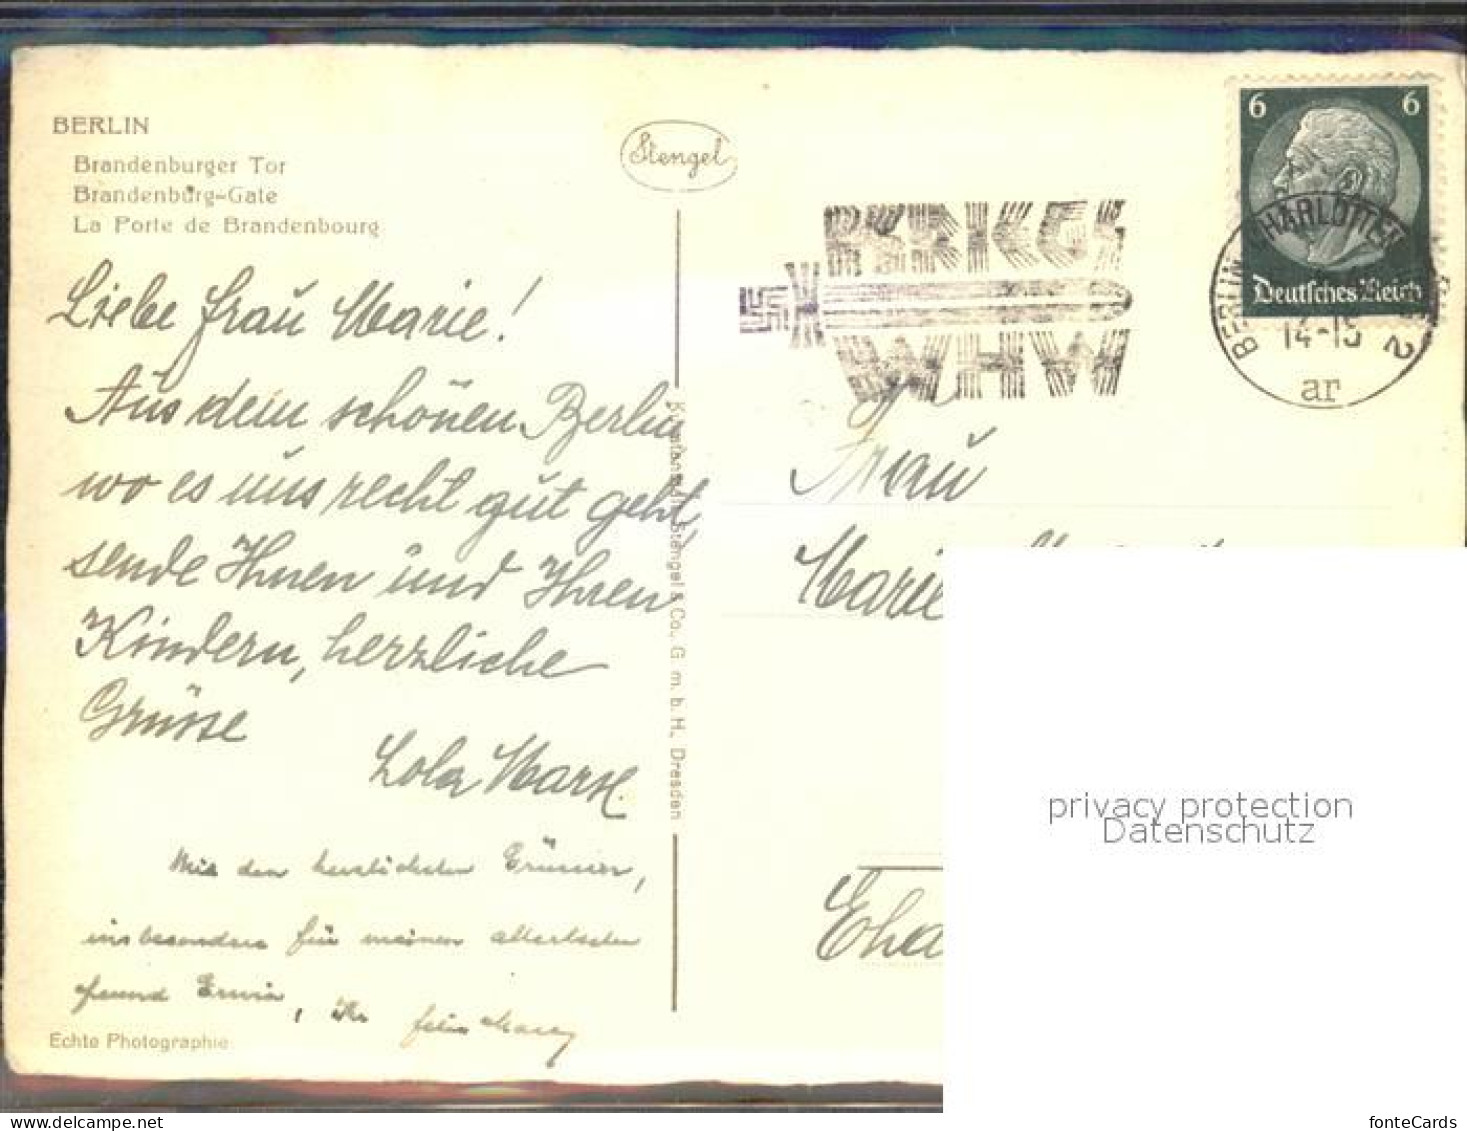 BERLIN
Brandenburger Tor
Brandenburg-Gate
La Porte de Brandenbourg
Stengel
6 6
Deutsches Reich
BERLIN CHARLOTTEN 2
14-15
ar
KRIEGS
WHW
Liebe Frau Marie!
Aus dem schönen Berlin
wo es uns recht gut geht,
sende Ihnen und Ihren
Kindern, herzliche
Grüsse
Lola
Mit den herzlichsten Grüssen,
insbesondere für meinen
Freund Erwin, Ihr
Echte Photographie
Stengel & Co., G. m. b. H., Dresden
Frau
Marie
privacy protection
Datenschutz
fonteCards